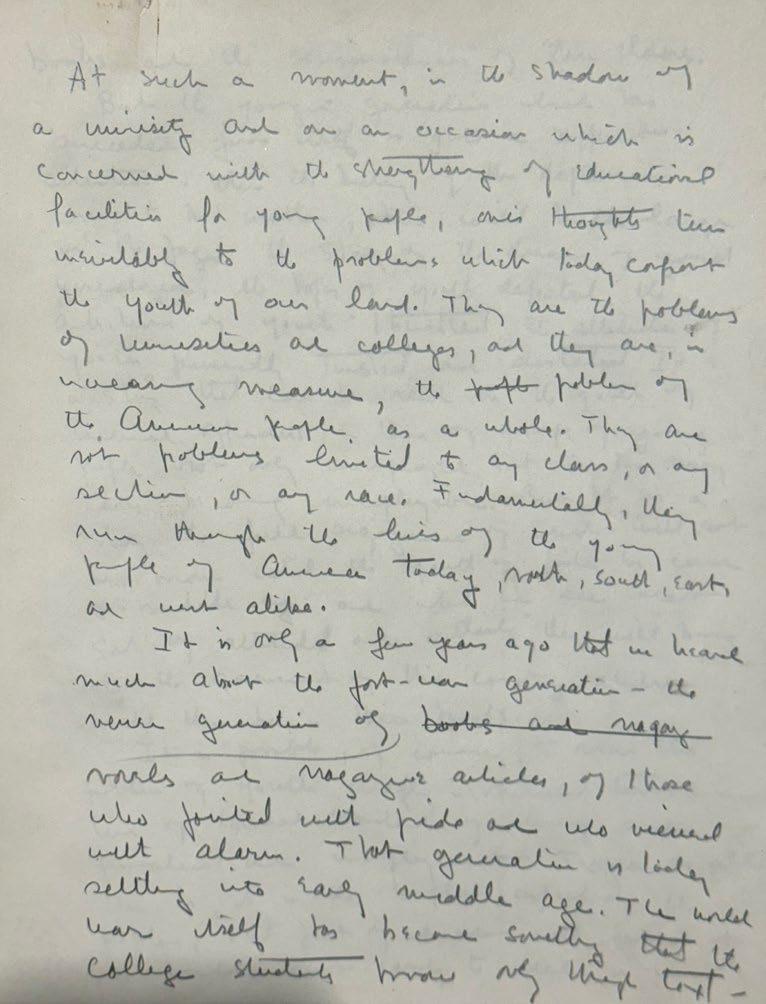 At such a moment, in the shadow of
a university and on an occasion which is
concerned with the strengthening of educational
facilities for young people, one's thoughts turn
inevitably to the problems which today confront
the youth of our land. They are the problems
of universities and colleges, and they are, in
increasing measure, the problem of
the American people, as a whole. They are
not problems limited to any class, or any
section, or any race. Fundamentally, they
run through the lives of the young
people of America today, north, south, east,
and west alike.
It is only a few years ago that we heard
much about the post-war generation – the
generation of books and magaz
novels and magazine articles, of those
who pointed with pride and who viewed
with alarm. That generation is today
settling into early middle age. The world
war itself has become something that the
college students know only through text-